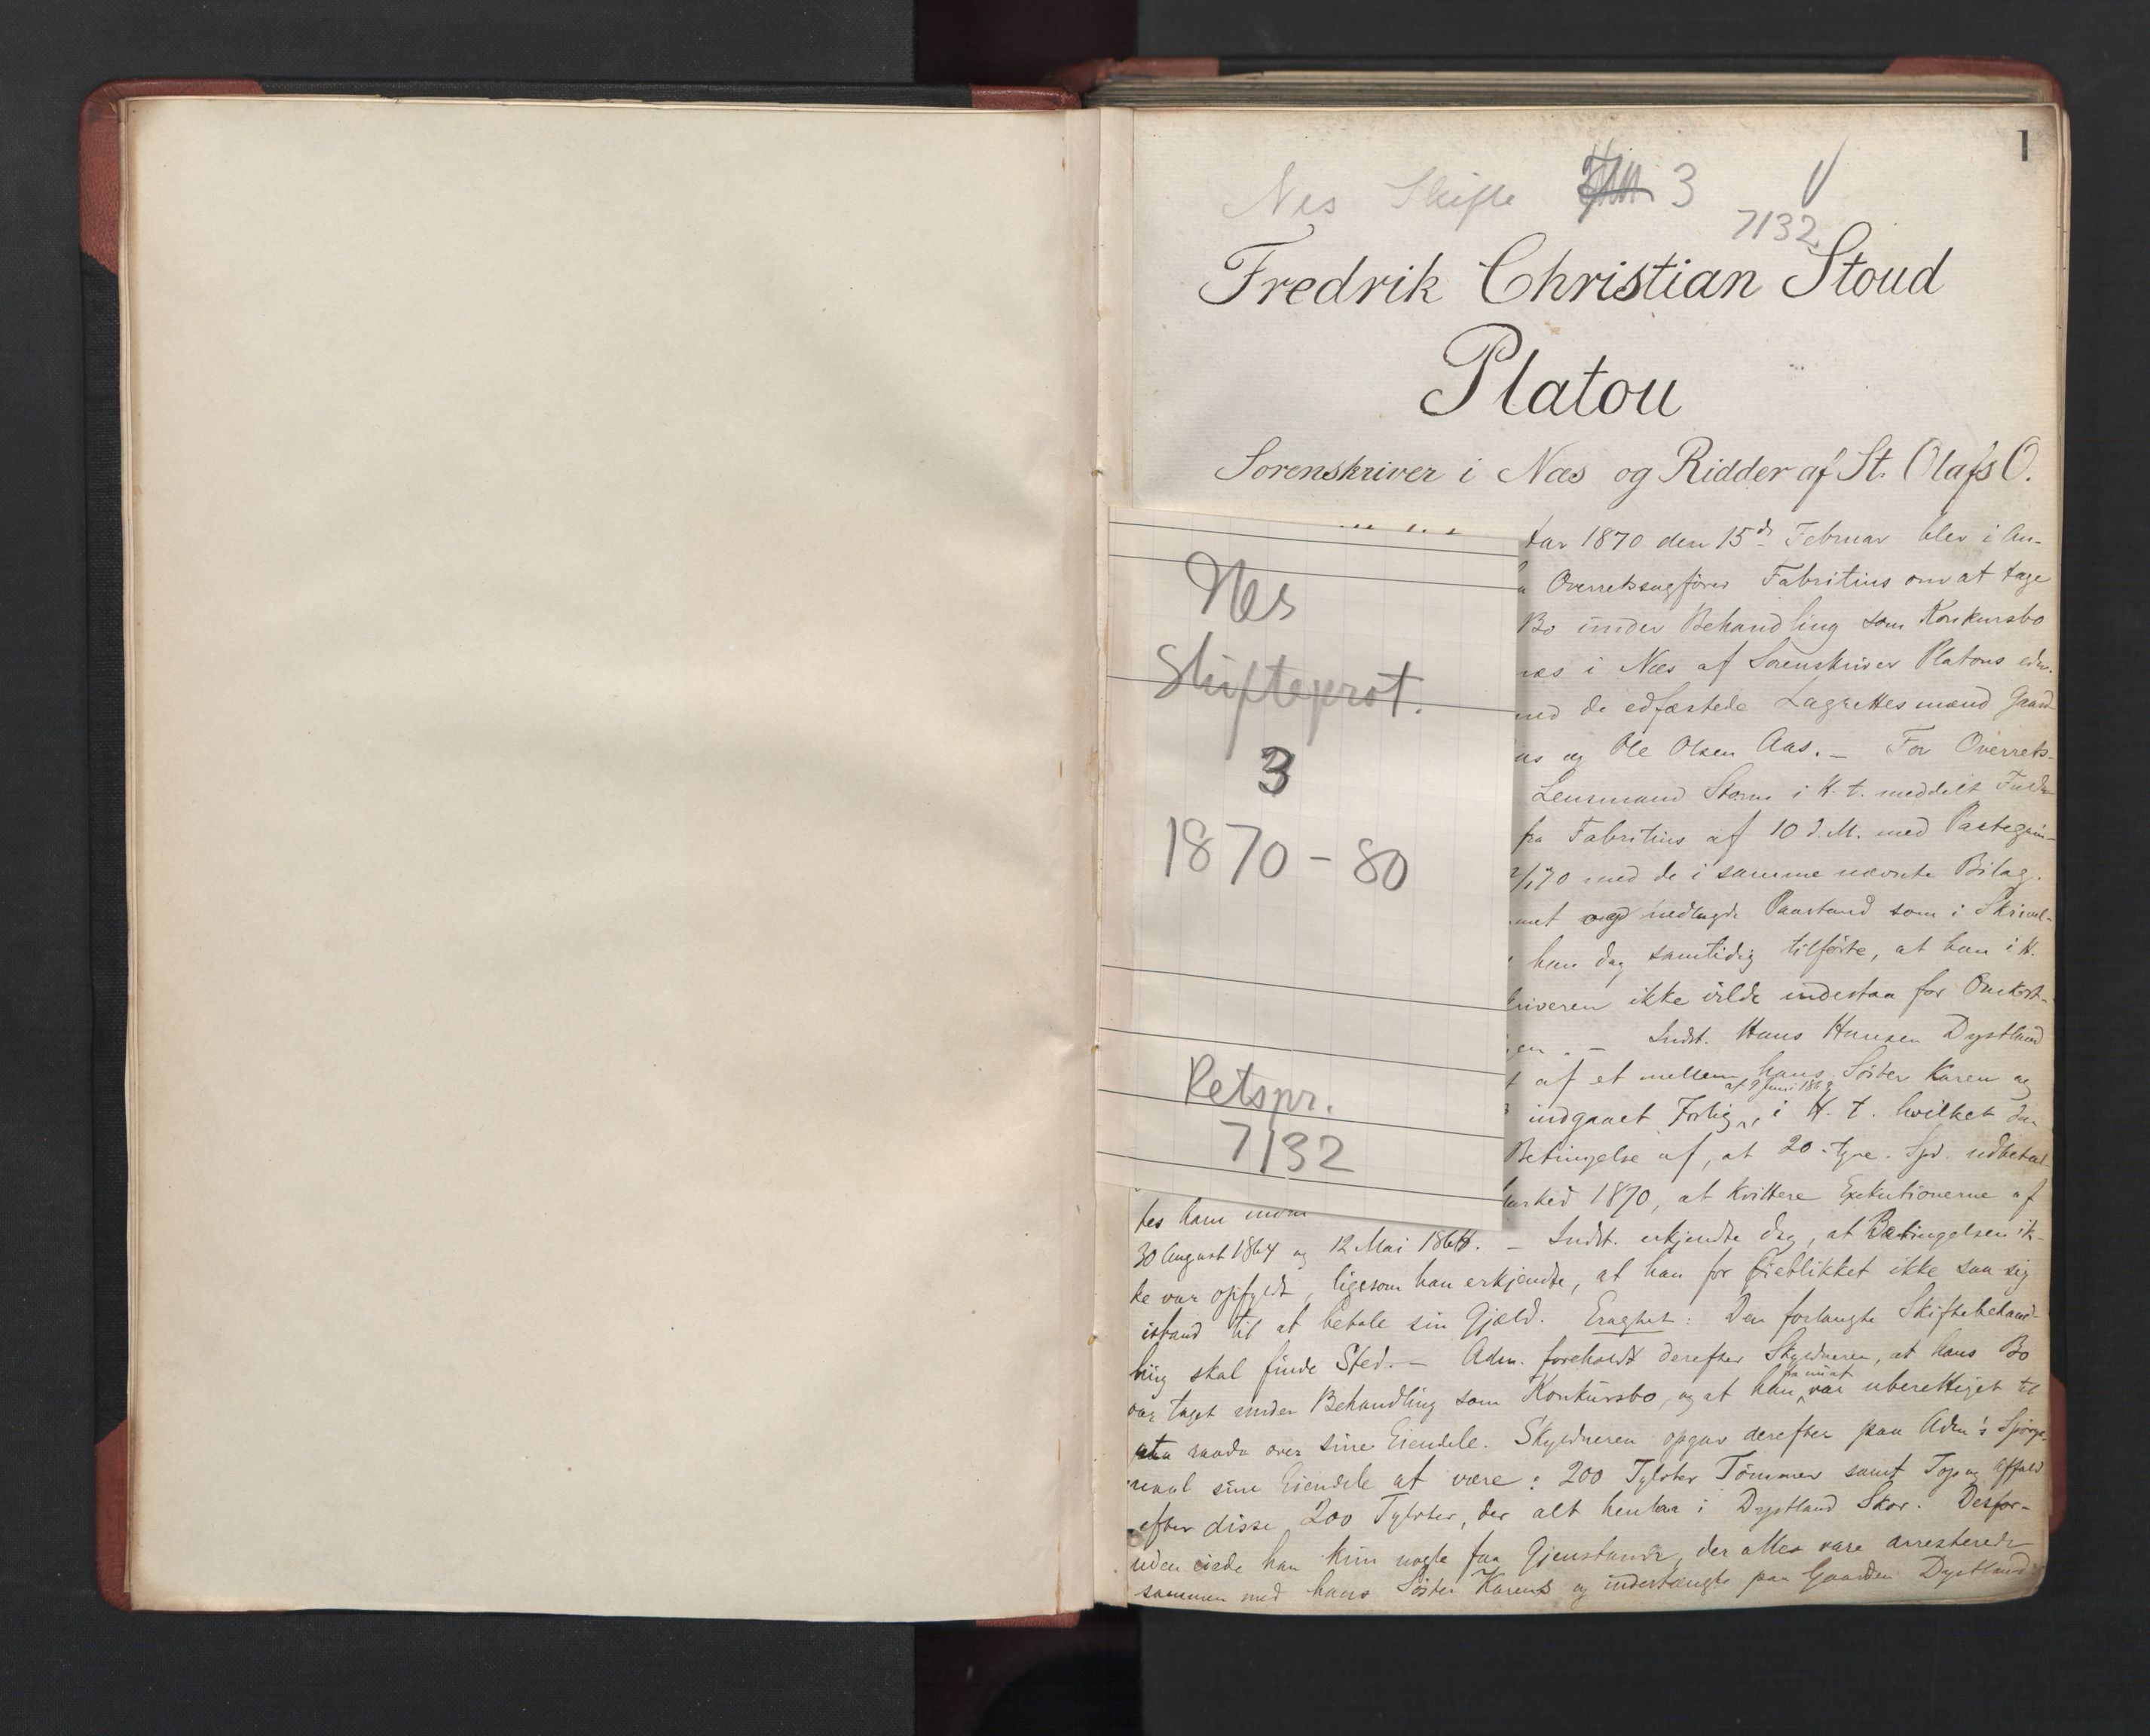 1
Nes Skifte 3
7132
Fredrik Christian Stoud
Platou
Sorenskriver i Næs og Ridder af St. Olafs O.
Nes
Skifteprot.
3
1870 - 80
Retspr.
7132
Aar 1870 den 15de Februar blev i An-
Overretssagfører Fabritius om at tage
Bo under Behandling som Konkursbo
næs i Næs af Sorenskriver Platous edsv.
med de edfæstede Lagrettesmænd Gaard-
as og Ole Olsen Aas. — For Overrets-
Lensmand Storm i K. t. meddelt Fuldm
fra Fabritius af 10 d. M. med Paategnin-
/70 med de i samme nævnte Bilag.
met og nedlagde Paastand som i Skrivel-
han dog samtidig tilførte, at han i H.
kriveren ikke vilde indestaa for Omkost-
en. — Indst. Hans Hansen Dystland
t af et mellem hans Søster Karen og
af 9 Juni 186
indgaaet Forlig, i H. t. hvilket
Betingelse af, at 20 - tyve - Spd. udbetal-
arked 1870, at kvittere Exekutionerne af
tes ham inden
30 August 1864 og 12 Mai 186 . — Indst. erkjendte dog, at Betingelsen ik-
ke var opfyldt, ligesom han erkjendte, at han for Øieblikket ikke saa sig
istand til at betale sin Gjæld. Eragtet: Den forlangte Skiftebehand-
ling skal finde Sted. — Adm. foreholdt derefter Skyldneren, at hans Bo
var taget under Behandling som Konkursbo, og at han var uberettiget til
raade over sine Eiendele. Skyldneren opgav derefter paa Adm's Spørgs-
maal sine Eiendele at være: 200 Tylvter Tømmer samt Top og Affald
efter disse 200 Tylvter, der alt henlaa i Dystland Skov. Desfor-
uden eiede han kun nogle faa Gjenstande, der alles vare arresterede
sammen med hans Søster Karens og indestængte paa Gaarden Dystland